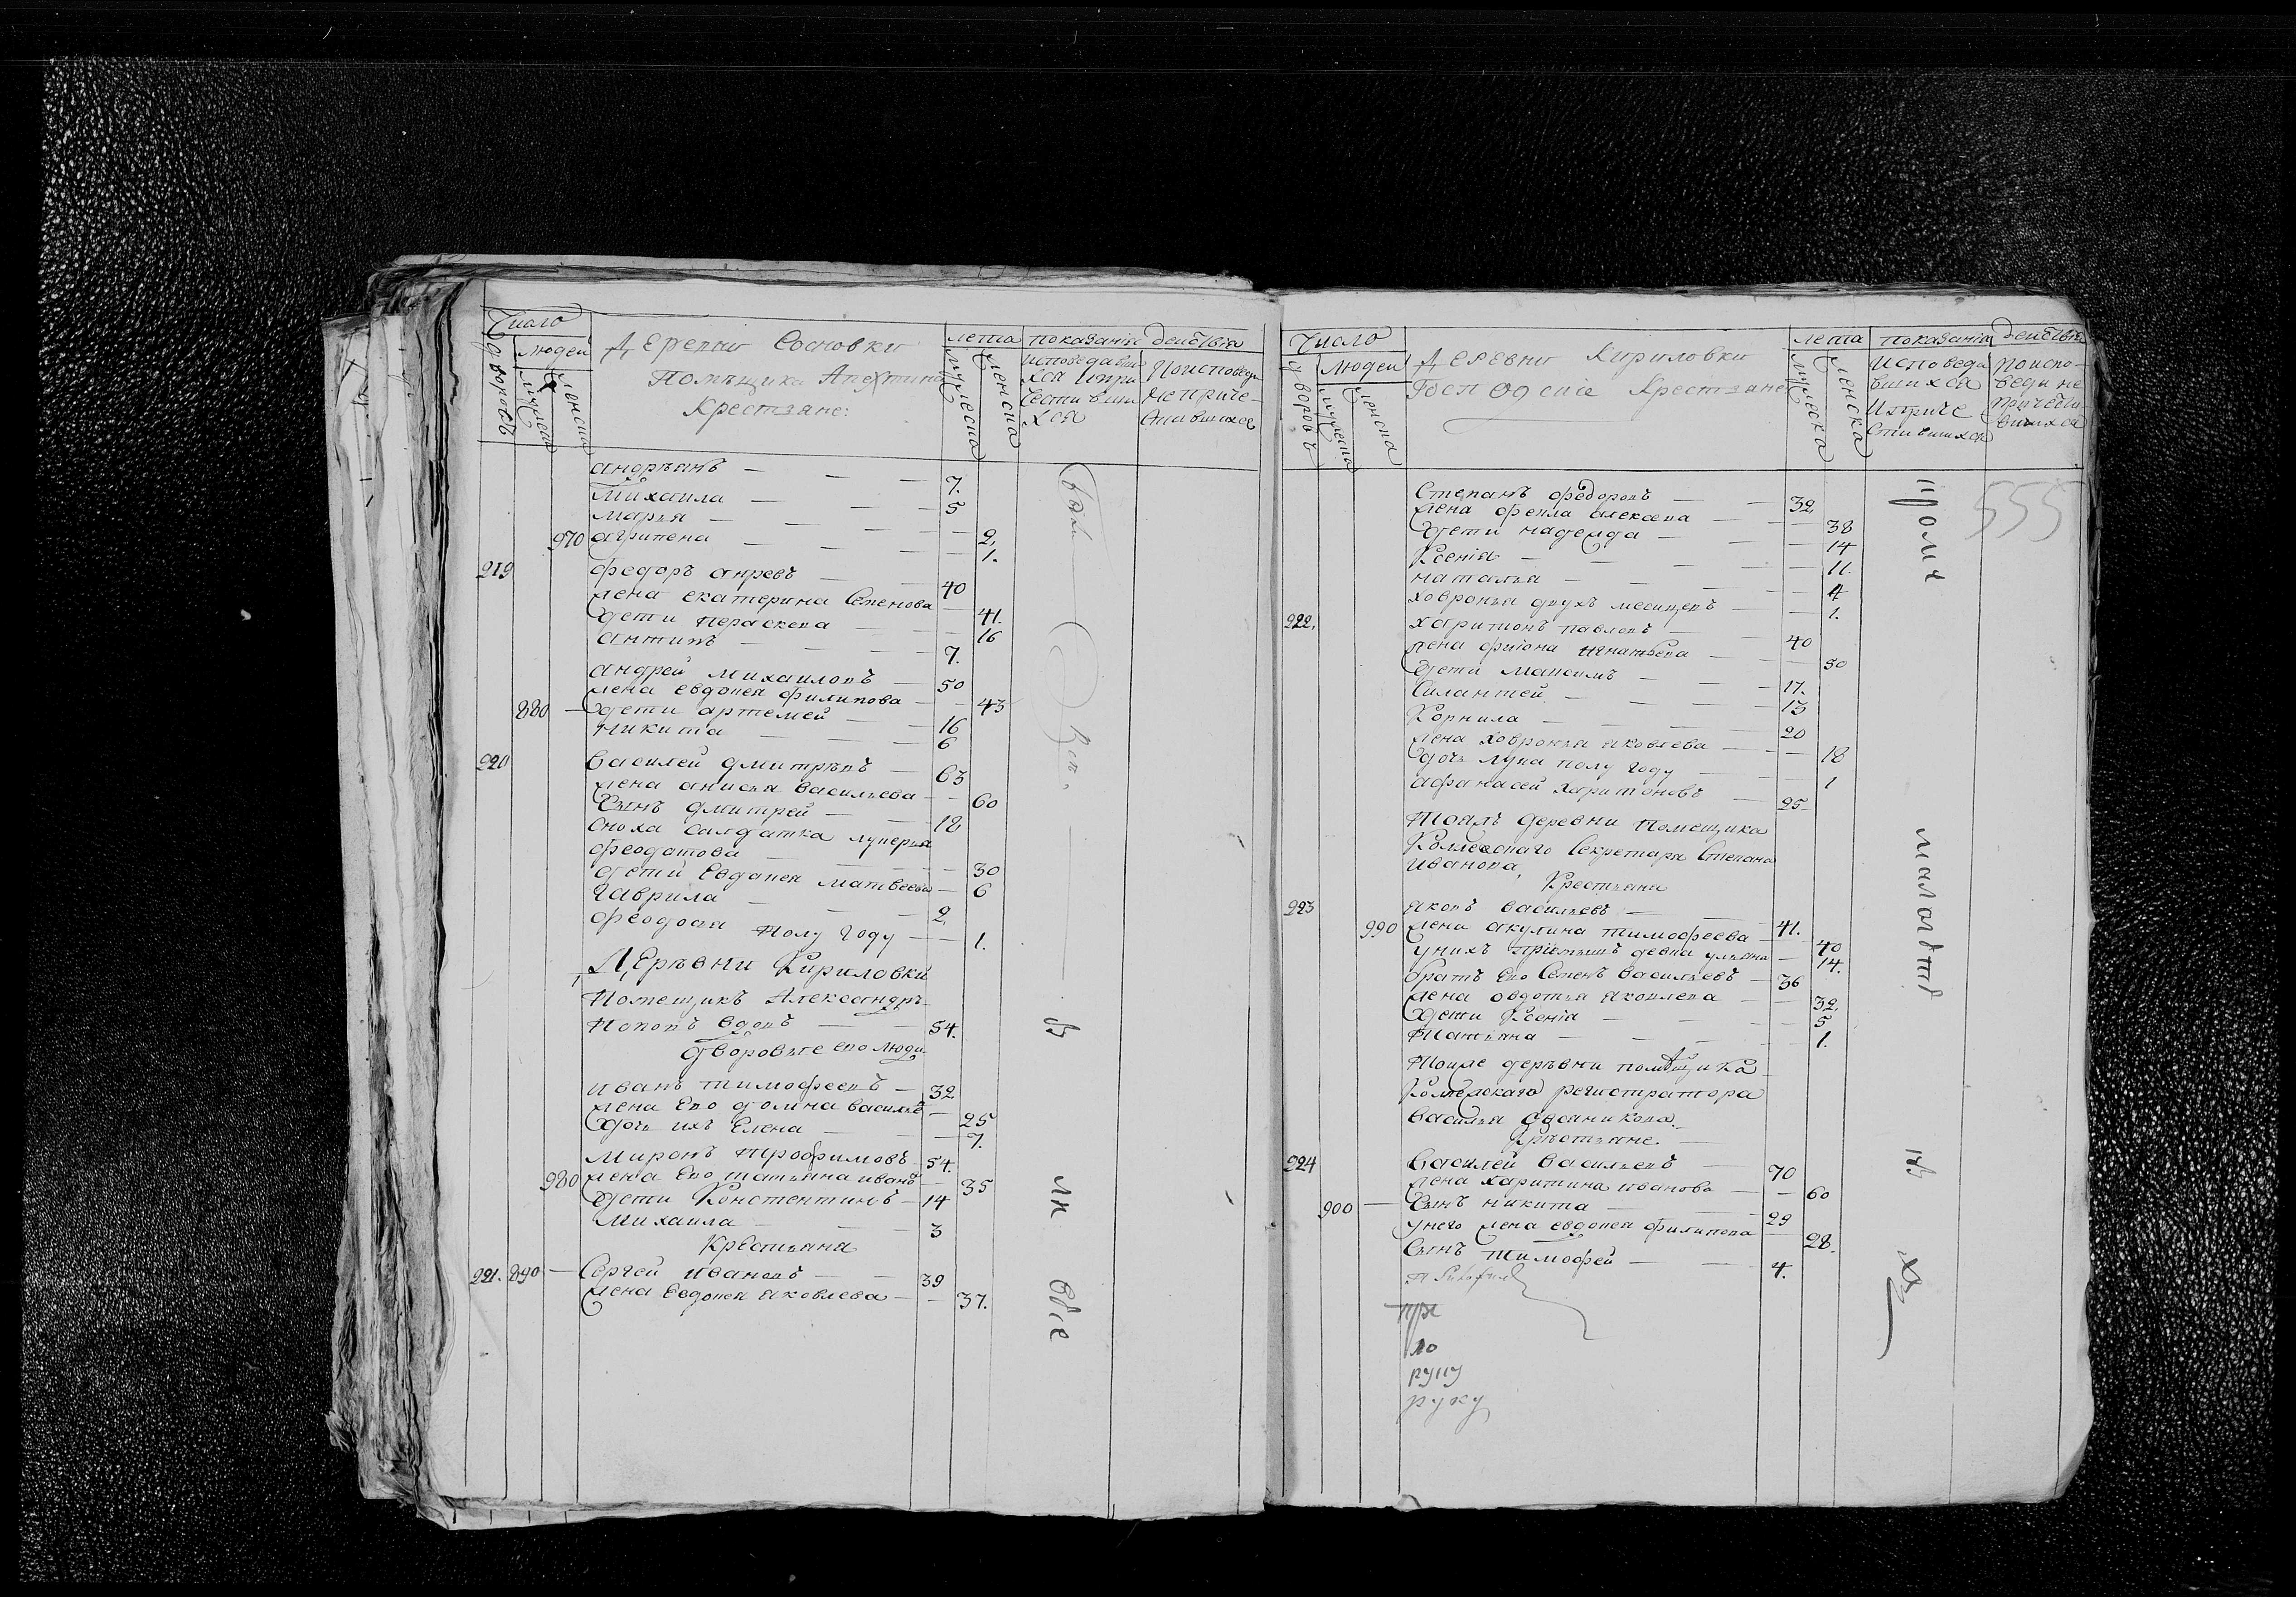 Число
Деревни Сосновки
лета
показаніи действія
дворовъ
людей
Помѣщика Апехтина
мужеска
женска
исповедавши
хся и при
честивши
хся
Крестьяне:
андрѣянъ — 7.
Михаила — 5
марья — 2.
970 агрипена — 1.
219 федоръ анреевъ — 40
жена екатерина Семенова — 41.
дети пераскева — 16
антипъ — 7.
андрей михаиловъ — 50
жена евдокея филипова — 43
880 — дети артемей — 16
никита — 6
220 василей дмитрѣвъ — 63
жена анисья васильева — 60
сынъ дмитрей — 18
сноха салдатка лукерья
феодотова — 30
дети Евдакея матвеева — 6
гаврила — 2.
феодосия полу году — 1.
Дерѣвни Кириловки
Помещикъ Александръ
Поповъ вдовъ — 54.
дворовые ево люди
иванъ тимофеевъ — 32
жена Ево домна василье — 25
дочь ихъ Елена — 7.
миронъ трофимовъ — 54.
980 жена Ево татьяна иван — 35
дети Констентинъ — 14
михаила — 3
Крестьяна
221. 890 — Сергей ивановъ — 39
жена Евдокея яковлева — 37.
вси
в
ли
Число
Деревни Кириловки
лета
показаніи действія
дворовъ
людей
Господскіе Крестьяне
мужеска
женска
исповеда
вшихся
и приче
стившихся
поиспо-
веди не
555
Степанъ федоровъ — 32
жена фекла алексева — 38
дети надежда — 14
Ксенія — 11.
наталья — 4
ховронья двухъ месицевъ — 1.
222. харитонъ павловъ — 40
жена игнатьева — 50
дети максимъ — 17.
Силантей — 13
Корнила — 20
жена ховронья яковлева — 18
дочь полу году — 1
афанасей харитоновъ — 25
Тоажъ деревни помещика
Коллескаго Секретаря Степана
иванова,
Крестьяна
223 яковъ васильевъ — 41.
990 жена акулина тимофеева — 40
у нихъ девка ульяна — 14.
братъ Ево Семенъ васильевъ — 36
жена овдотья яковлева — 32.
дети Ксенія — 5
татьяна — 1.
тоиже дерѣвни помѣщика
Коллежскаго регистратора
василья овсаникова
Крѣстьяне.
224 василей васильевъ — 70
жена харитина иванова — 60
900 — сынъ никита — 29
у него жена евдокея филипова — 28.
сынъ тимофей — 4.
при
ло
руку
руку